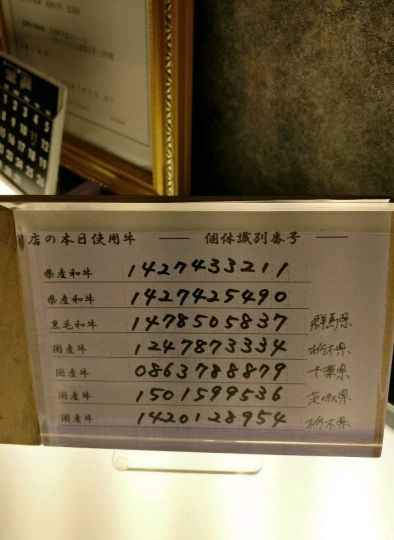 店の本日使用牛 — 個体識別番号 —
県産和牛 1427433211
県産和牛 1427425490
黒毛和牛 1478505837 群馬県
国産牛 1247873334 栃木県
国産牛 0863788879 千葉県
国産牛 1501599536 茨城県
国産牛 1420128954 栃木県